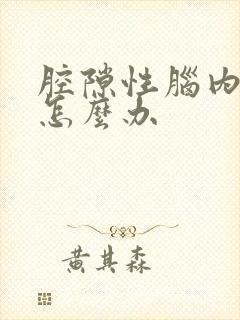 腔隙性腦内
怎麼办
黄其森